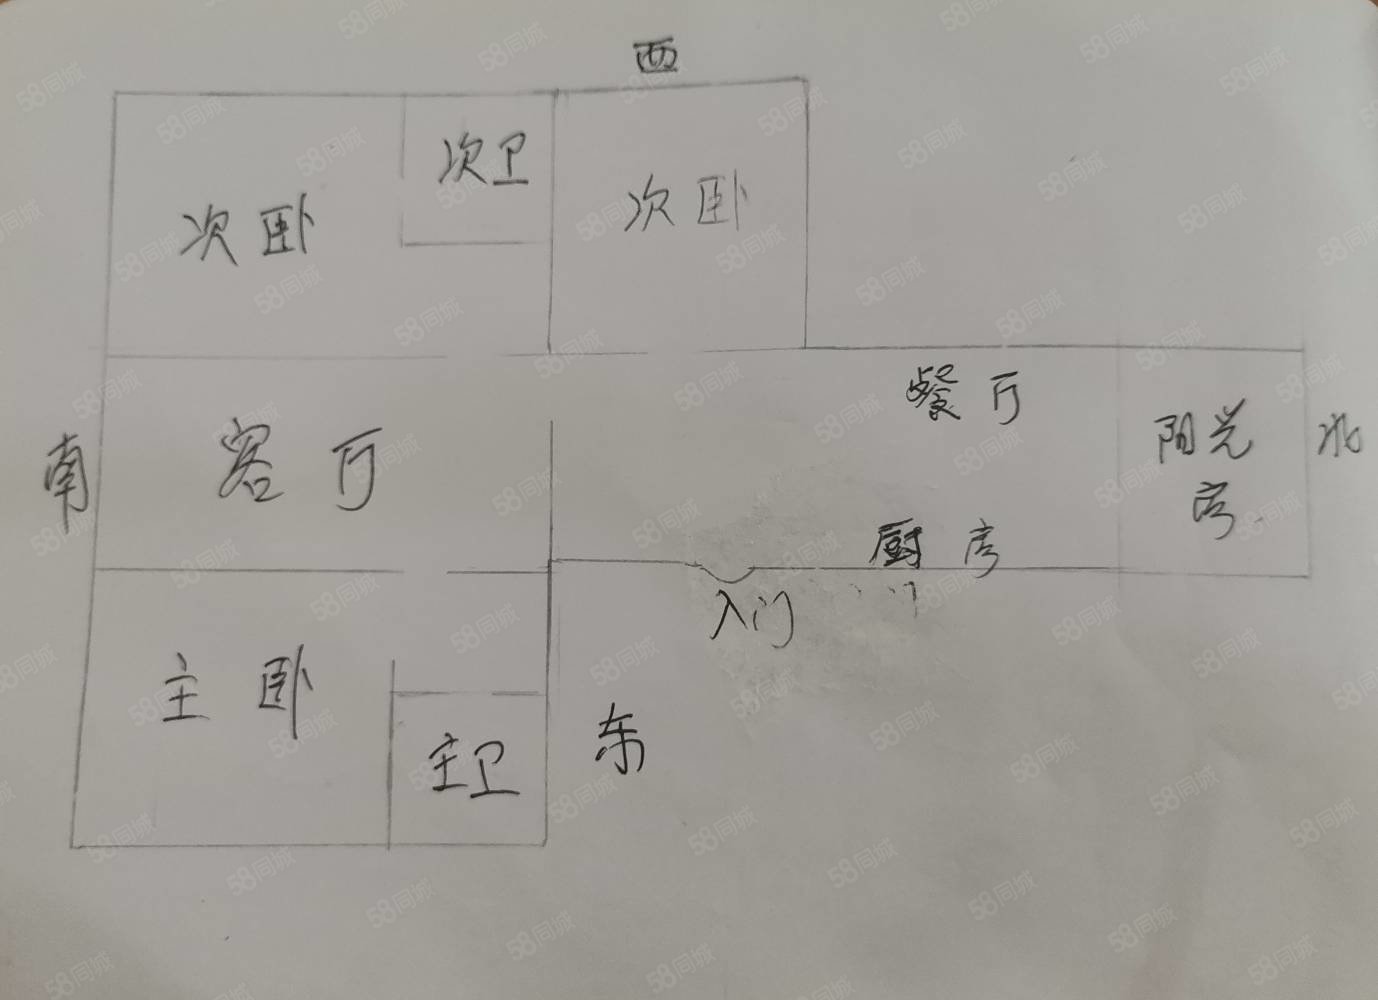 西
次卫
次卧
次卧
餐厅
阳光
房
北
南
客厅
厨房
入门
主卧
主卫
东
58同城